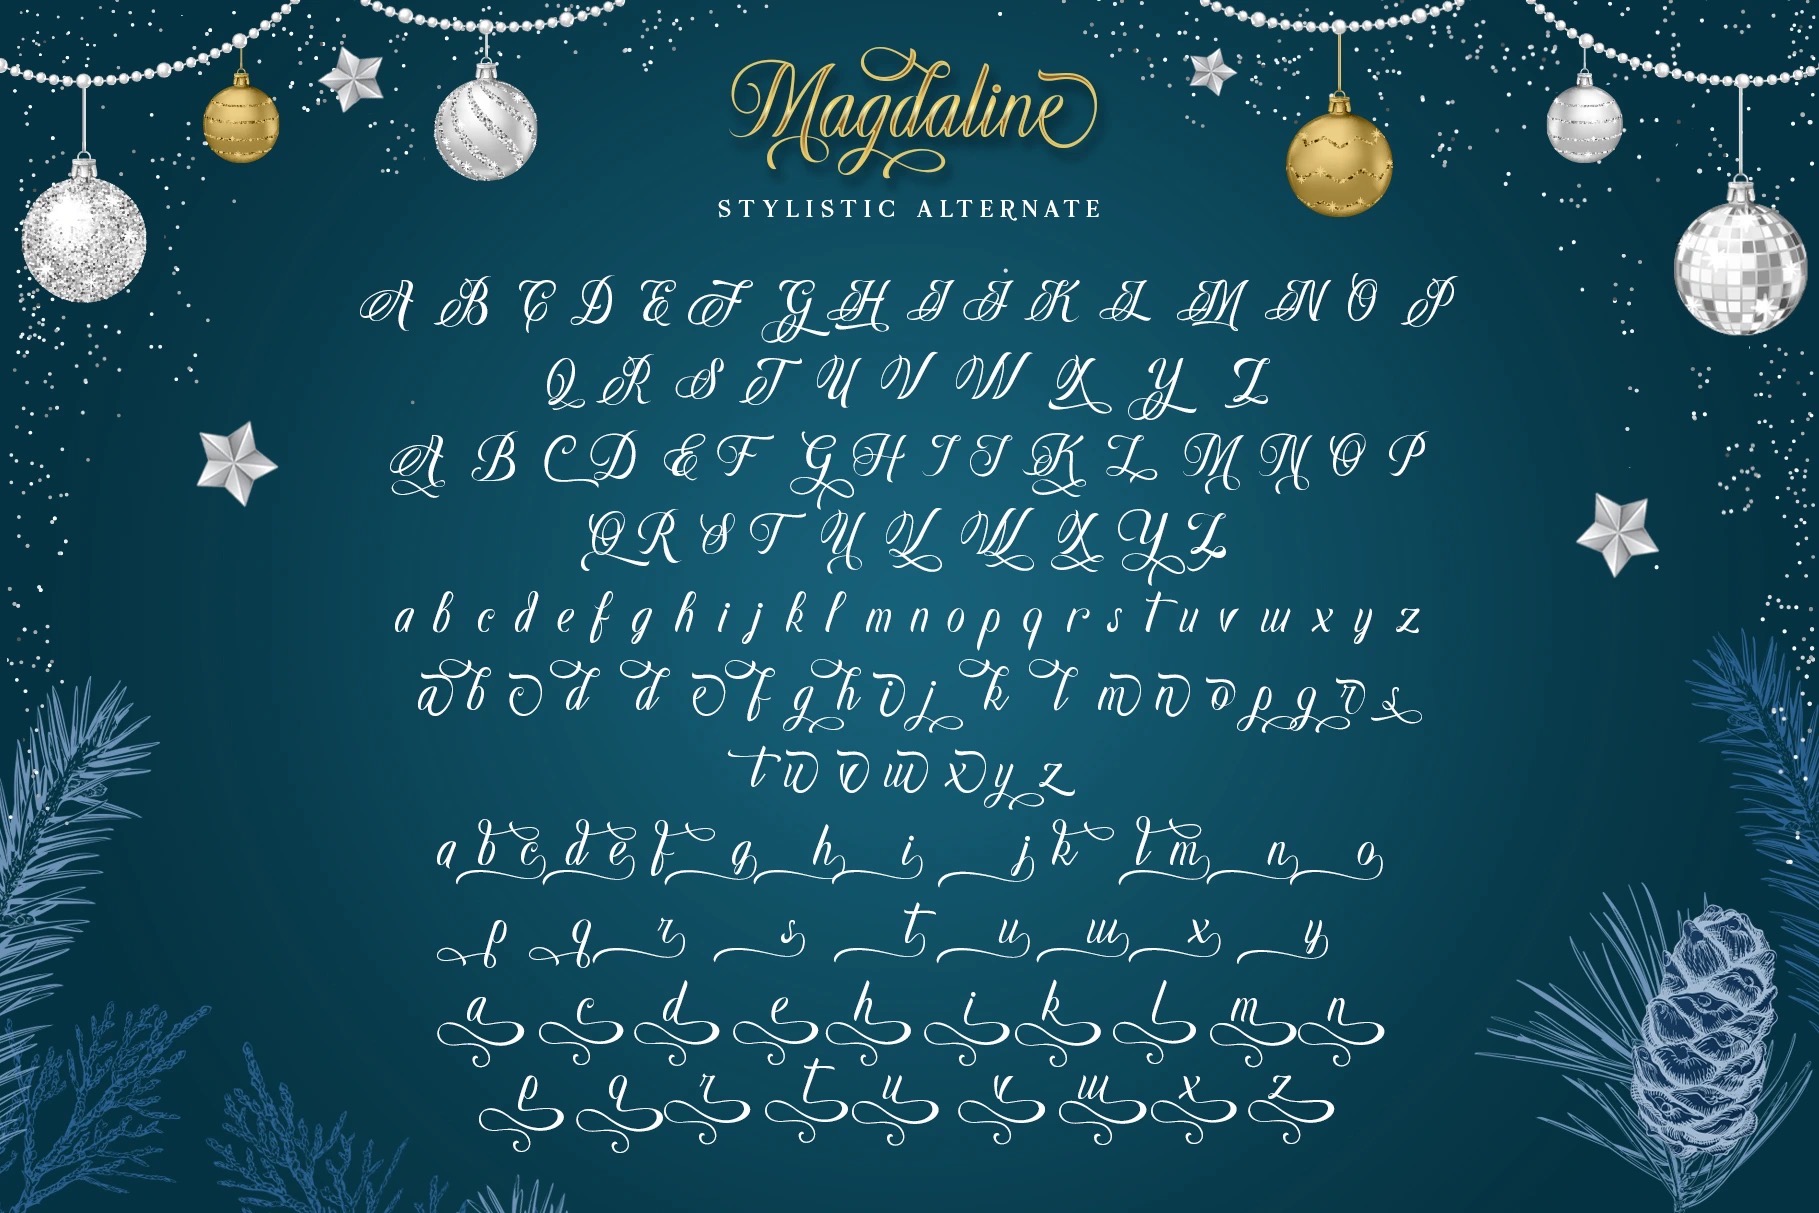 Magdaline
STYLISTIC ALTERNATE
A B C D E F G H I J K L M N O P
Q R S T U V W X Y Z
A B C D E F G H I J K L M N O P
Q R S T U V W X Y Z
a b c d e f g h i j k l m n o p q r s t u v w x y z
a b c d d e f g h i j k l m n o p q r s
t u v w x y z
a b c d e f g h i j k l m n o
p q r s t u w x y
a c d e h i k l m n
p q r t u v w x z